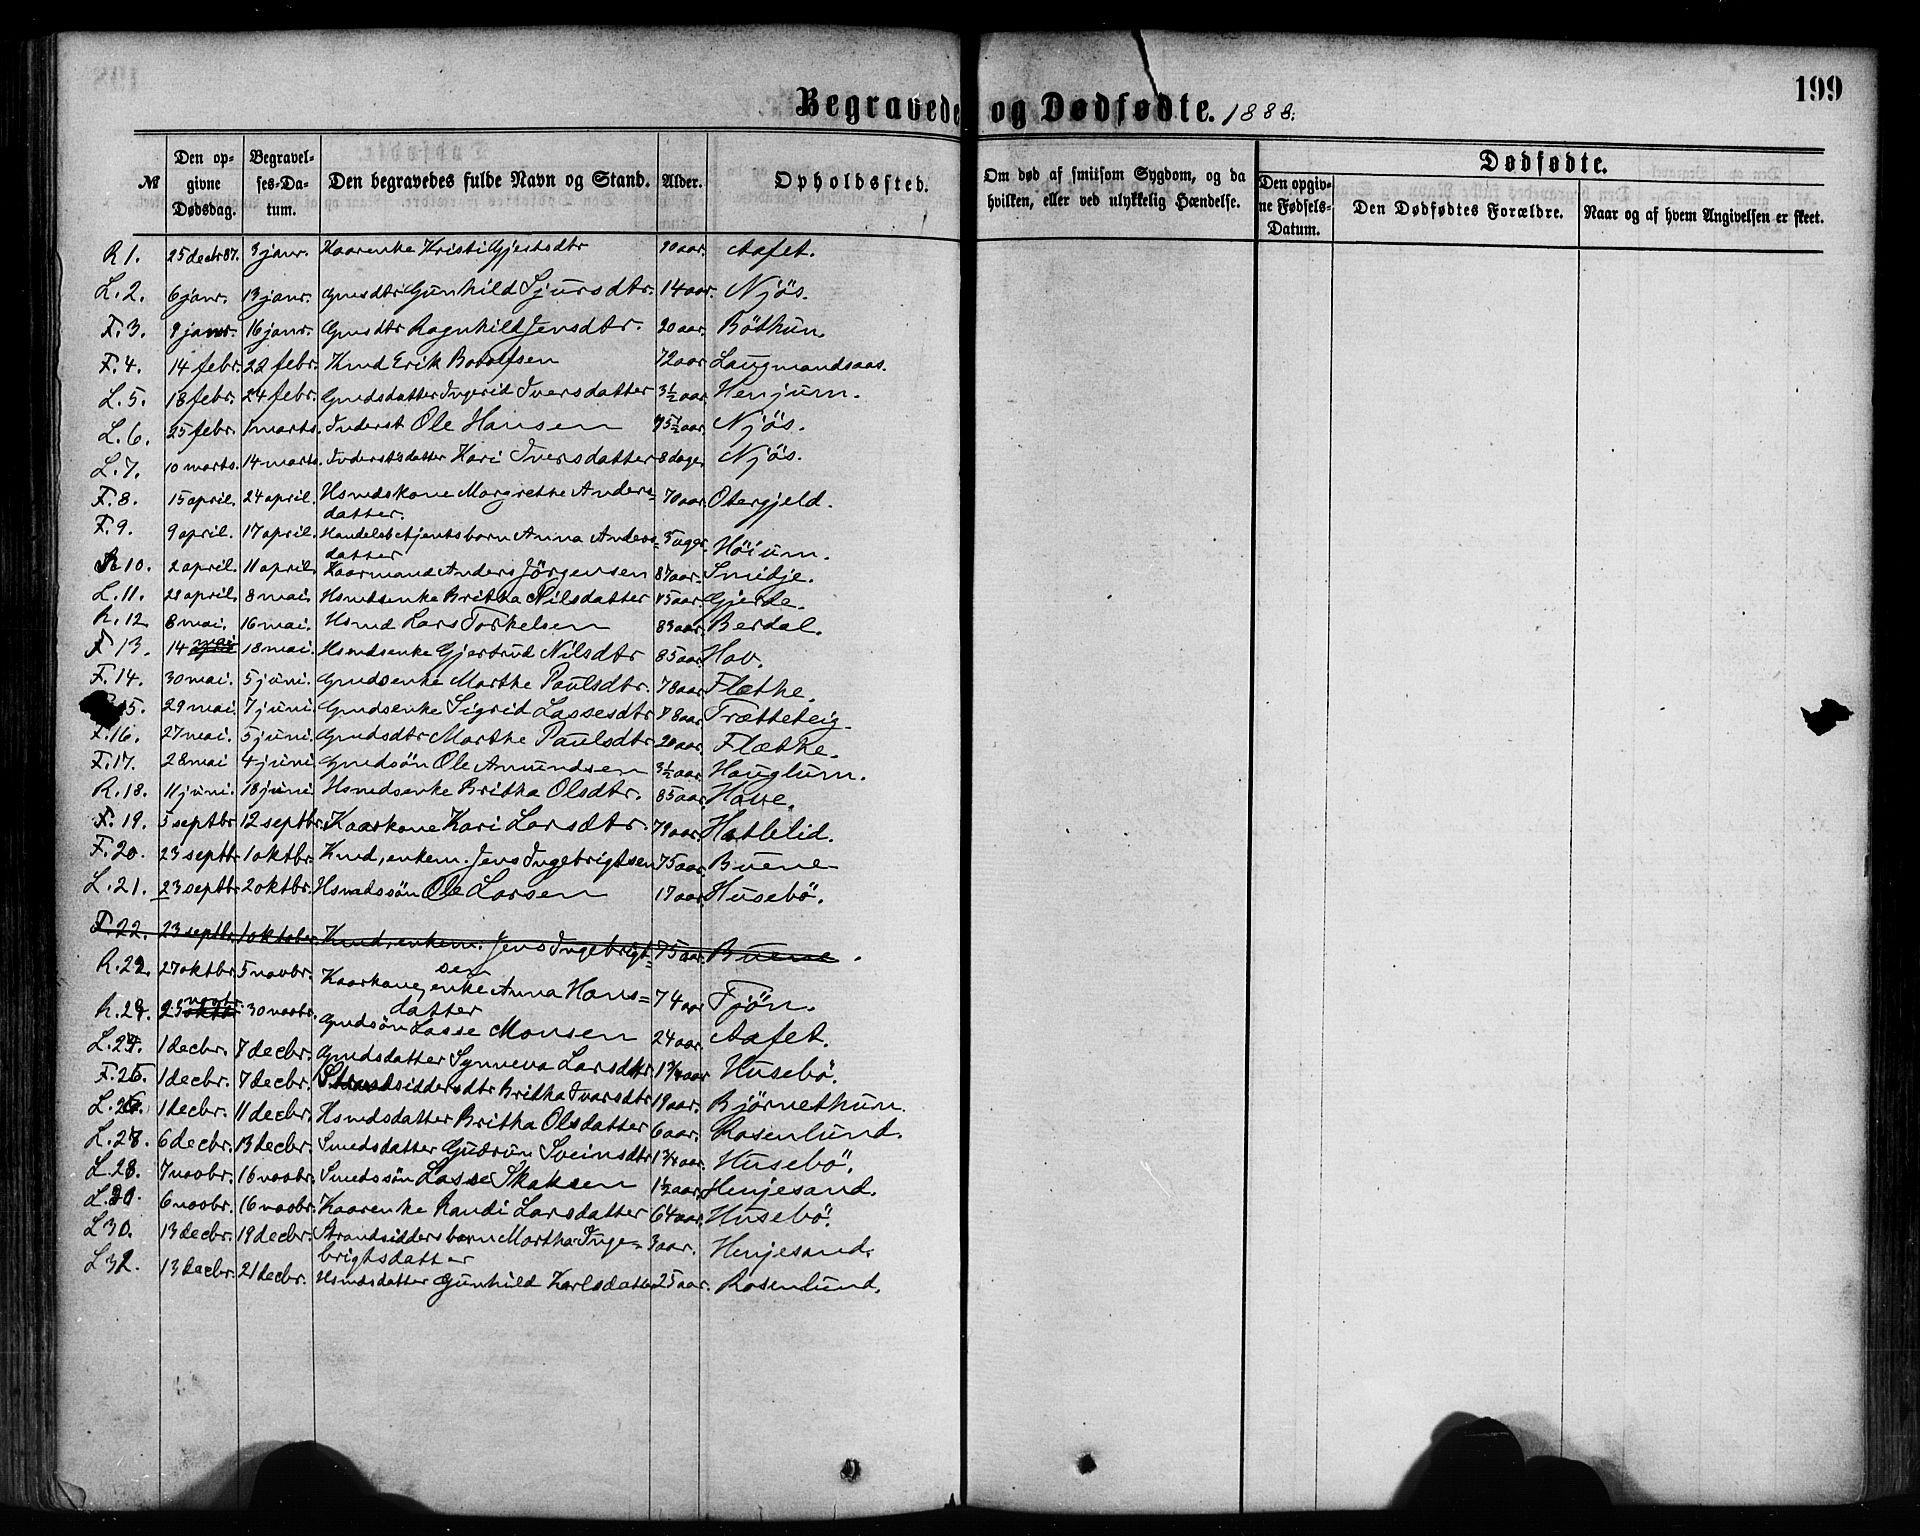 199
Begravede og Dødfødte. 1888.
№ | Den opgivne Dødsdag. | Begravelses-Datum. | Den begravedes fulde Navn og Stand. | Alder. | Opholdssted. | Om død af smitsom Sygdom, og da hvilken, eller ved ulykkelig Hændelse. | Dødfødte. | Den opgivne Fødsels-Datum. | Den Dødfødtes Forældre. | Naar og af hvem Angivelsen er skeet.
R 1. 25 decbr 87. 3 janr. Kaarenke Kristi Gjestsdtr 90 aar. Aafet.
L. 2. 6 janr. 13 janr. Gmdsdtr Gunhild Sjursdtr. 14 aar. Njös.
F. 3. 9 janr. 16 janr. Gmdsdtr Ragnhild Jensdtr. 20 aar. Böthun.
F. 4. 14 febr. 22 febr. Kmd Erik Botolfsen 72 aar. Laugmandsaas.
L. 5. 18 febr. 24 febr. Gmdsdatter Ingerid Iversdatter 3½ aar. Henjum.
L. 6. 25 febr. 1 marts. Inderst Ole Hansen 75½ aar. Njös.
L. 7. 10 marts. 14 marts. Inderstsdatter Kari Iversdatter 8 dage Njös.
F. 8. 15 april. 24 april. Hsmdskone Margrethe Anders=
datter. 70 aar. Obergjeld.
F. 9. 9 april. 17 april. Handelsbetjentsbarn Anna Anders=
datter 3 uger. Höium.
R. 10. 2 april. 11 april. Kaarmand Anders Jörgensen 87 aar. Smidje.
L. 11. 28 april. 8 mai. Hsmdsenke Britha Nilsdatter 75 aar. Gjerde.
R. 12 8 mai. 16 mai. Hsmd Lars Torkelsen 83 aar. Berdal.
F 13. 14 mai 18 mai. Hsmdsenke Gjertrud Nilsdtr 85 aar. Hov.
F. 14. 30 mai. 5 juni. Gmdsenke Marthe Paulsdtr. 78 aar. Flæthe.
15. 29 mai. 7 juni. Gmdsenke Sigrid Lassesdtr 78 aar. Trætteteig.
F. 16. 27 mai. 5 juni. Gmdsdtr Marthe Paulsdtr 20 aar. Flæthe.
F. 17. 28 mai 4 juni. Gmdsön Ole Amundsen 3½ aar. Hauglum.
R. 18. 11 juni. 18 juni. Hsmdsenke Britha Olsdtr. 85 aar. Hove.
F. 19. 5 septbr 12 septbr. Kaarkone Kari Larsdtr. 79 aar. Hatlelid.
F. 20. 23 septbr. 1 oktbr. Kmd, enkem. Jens Ingebrigtsen 75 aar. Buene
L. 21. 23 septbr 2 oktbr. Hsmdssön Ole Larsen 17 aar. Husebö.
F. 22. 23 septbr. 1 oktober. Kmd, enkem. Jens Ingebrigt=
sen 75 aar. Buene.
R. 22. 27 oktbr. 5 novbr. Kaarkone, enke Anna Hans=
datter 74 aar Tjön.
R. 23. 23 novbr. 30 novbr. Gmdsön Lasse Monsen 24 aar. Aafet.
L. 24. 1 decbr. 7 decbr. Gmdsdatter Synneva Larsdtr. 1¾ aar Husebö.
F. 25. 1 decbr. 7 decbr. Strandsiddersdtr Britha Ivarsdtr 19 aar. Björnethun.
L. 26. 1 decbr. 11 decbr. Hsmdsdatter Britha Olsdatter 6 aar. Rosenlund.
L. 27. 6 decbr. 13 decbr. Smedsdatter Gudrun Sveinsdtr 1¾ aar. Husebö.
L. 28. 7 novbr. 16 novbr. Smedssön Lasse Skaksen 1½ aar. Henjesand.
L. 29. 6 novbr. 16 novbr. Kaarenke Randi Larsdatter 64 aar. Husebö.
L 30. 13 decbr. 19 decbr. Strandsiddersbarn Martha Inge=
brigtsdatter 3 aar. Henjesand.
L 31. 13 decbr. 21 decbr. Hsmdsdatter Gunhild Karlsdatter 25 aar. Rosenlund.